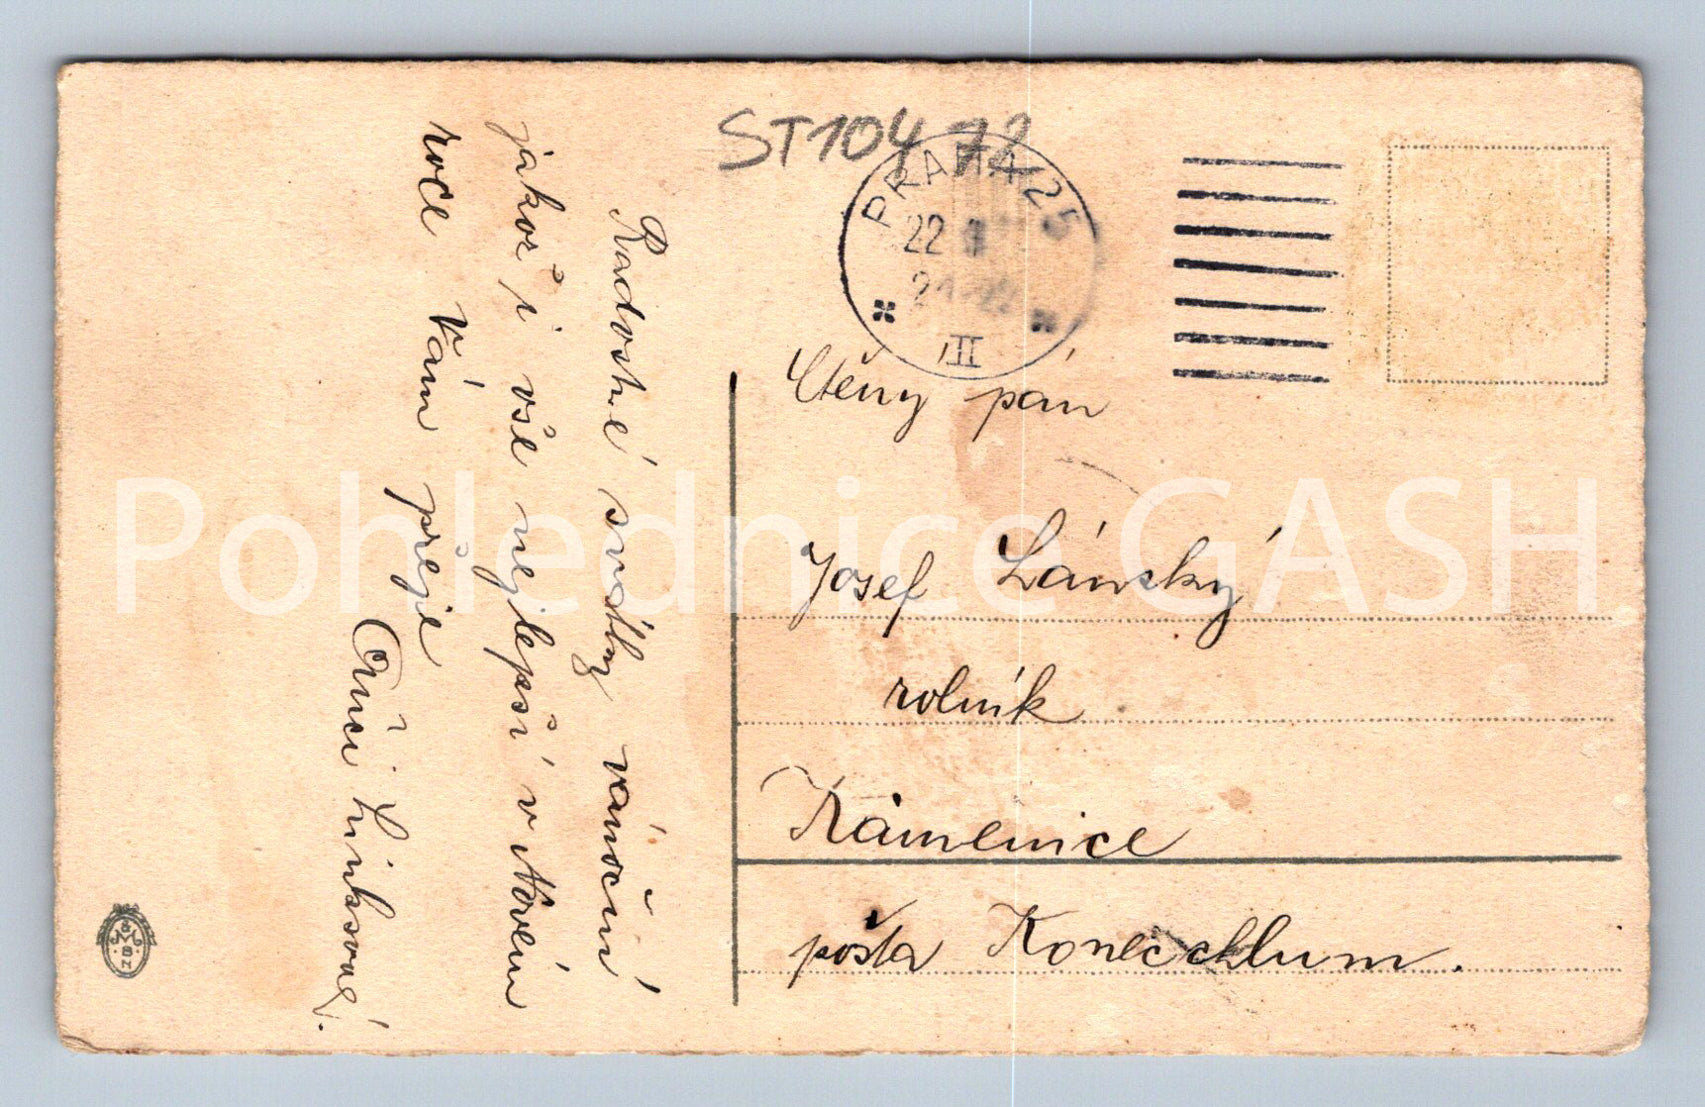 ST104 72
PRAHA 25
22
21
III
Ctěný pán
Josef Lánský
rolník
Kámenice
pošta Konecchlum.
Radostné svátky vánoční
jakož i vše nejlepší v Novém
roce Vám přeje
Pohlednice GASH